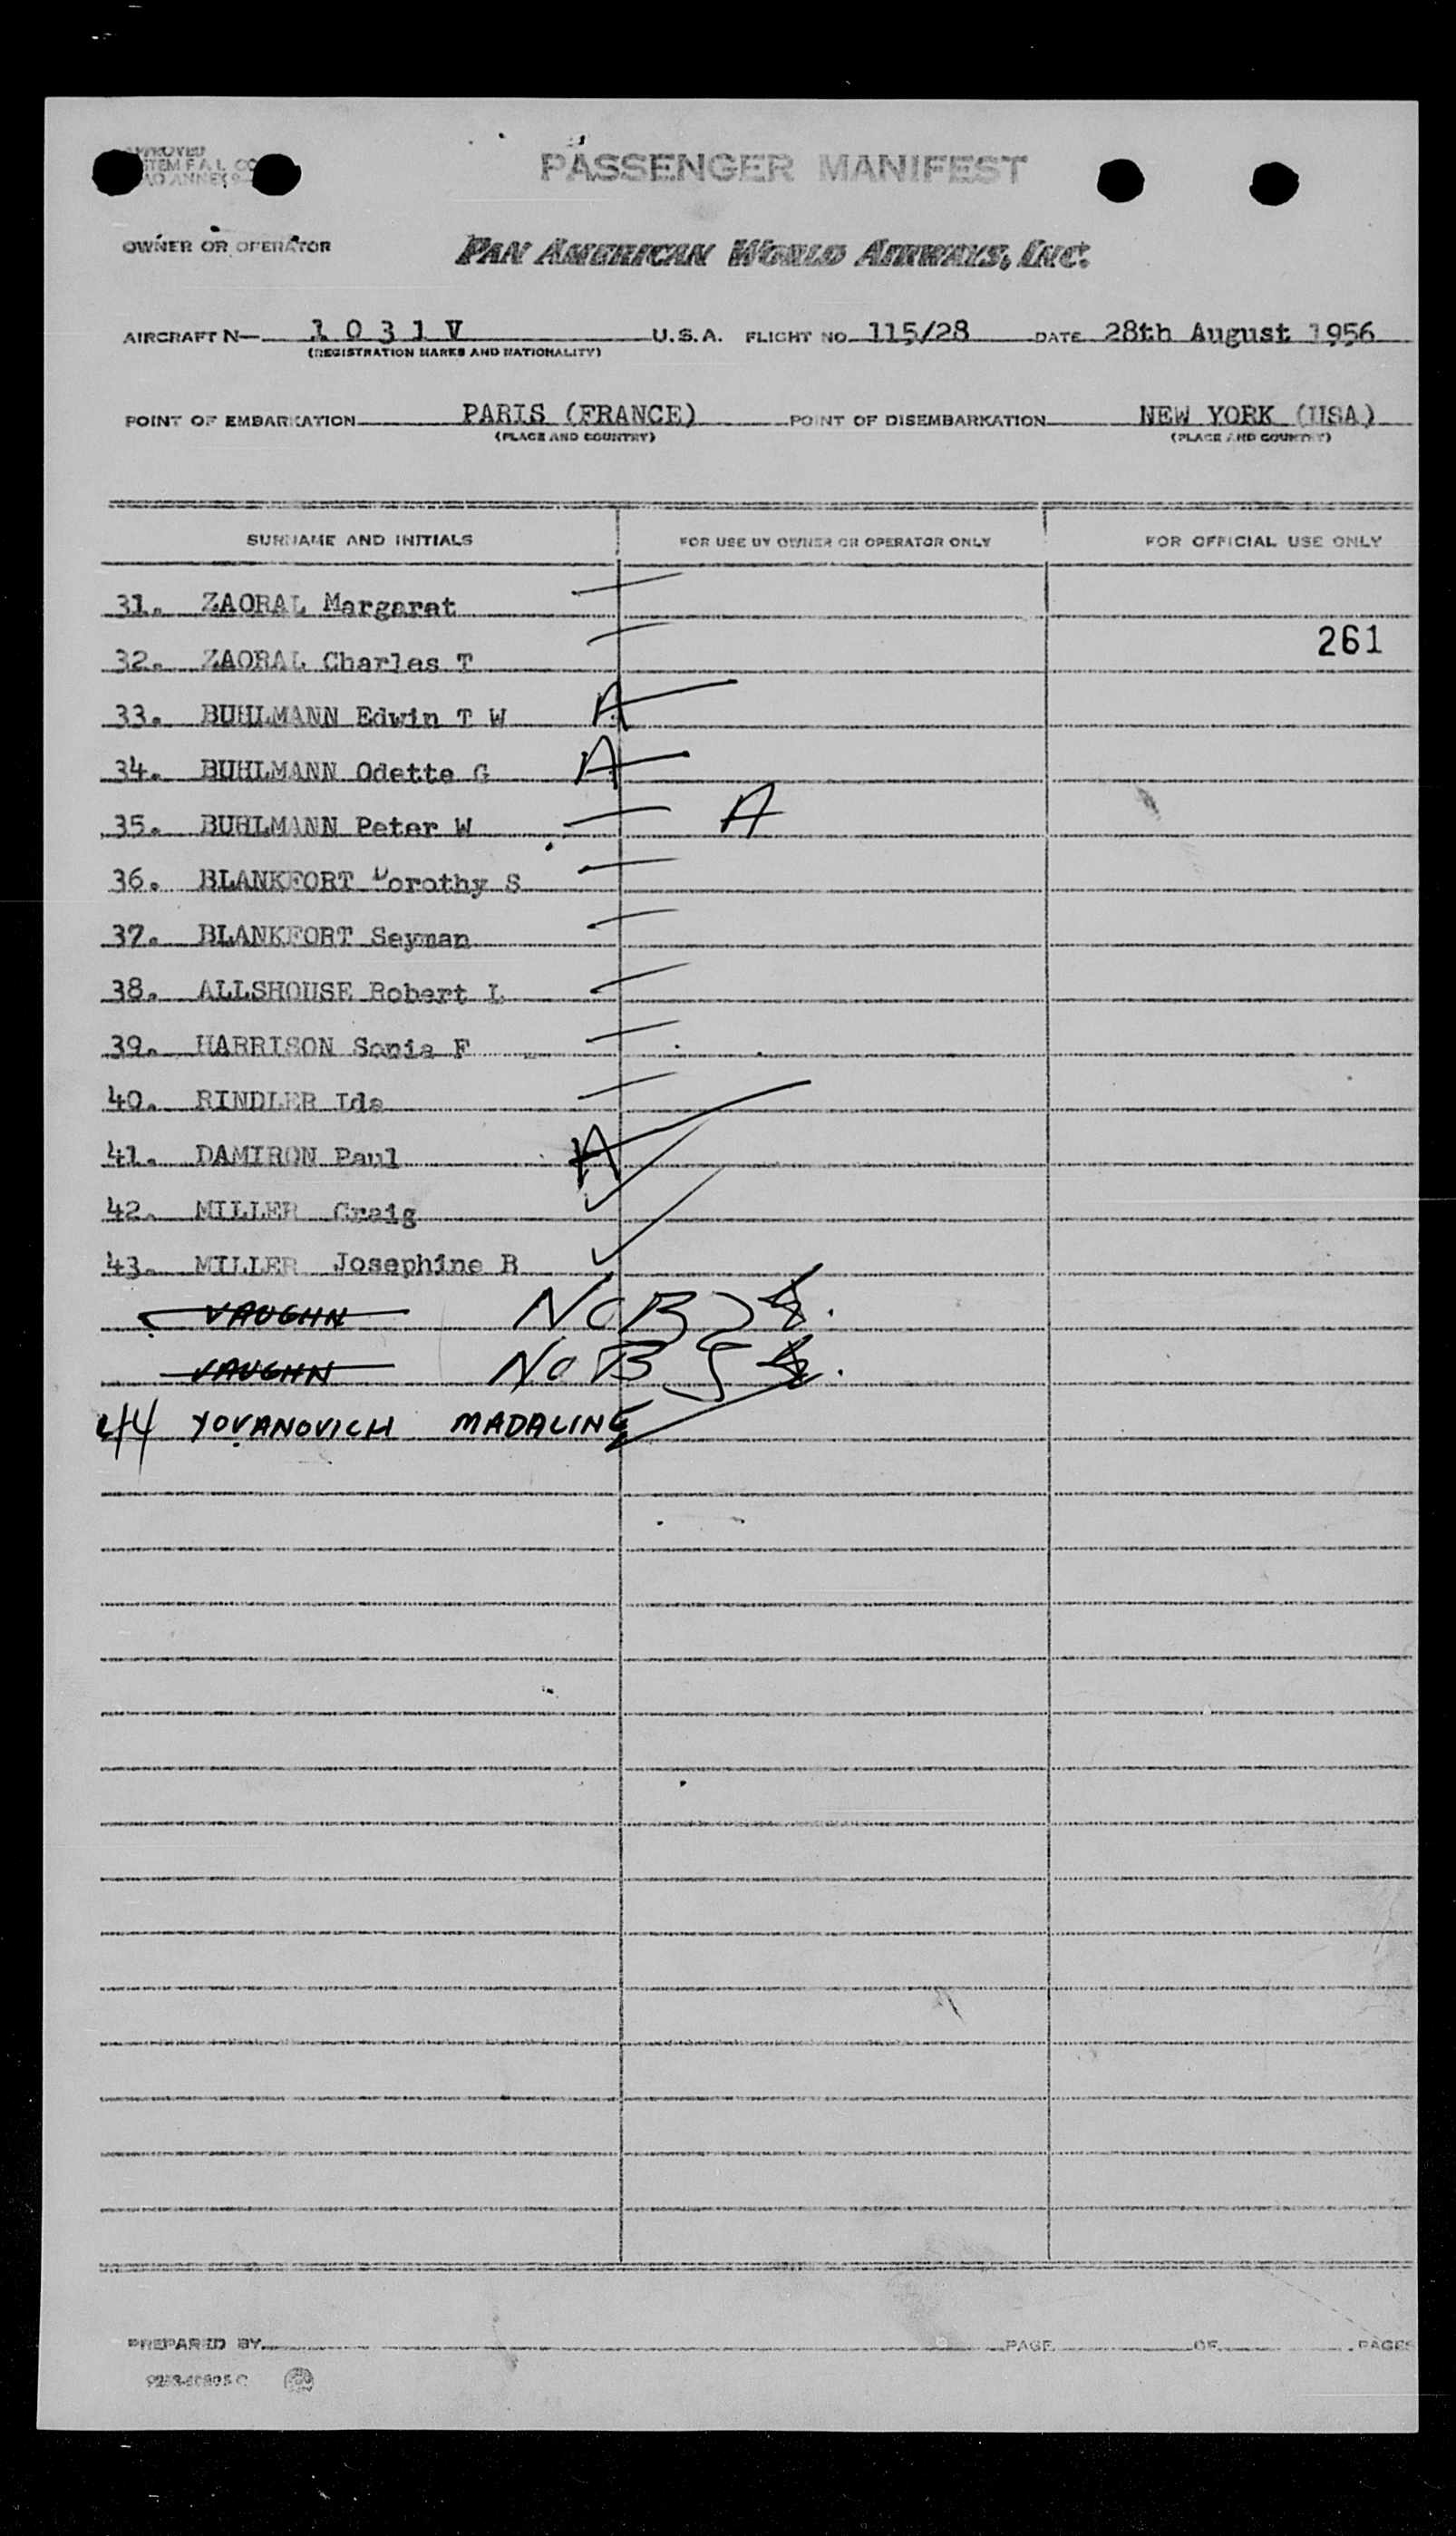 APPROVED
PASSENGER MANIFEST
OWNER OR OPERATOR PAN AMERICAN WORLD AIRWAYS, INC.
AIRCRAFT N— 1 0 3 1 V U.S.A. FLIGHT NO. 115/28 DATE 28th August 1956
(REGISTRATION MARKS AND NATIONALITY)
POINT OF EMBARKATION PARIS (FRANCE) POINT OF DISEMBARKATION NEW YORK (USA)
(PLACE AND COUNTRY) (PLACE AND COUNTRY)
SURNAME AND INITIALS FOR USE BY OWNER OR OPERATOR ONLY FOR OFFICIAL USE ONLY
31. ZAORAL Margarat
261
32. ZAORAL Charles T
33. BUHLMANN Edwin T W A
34. BUHLMANN Odette G A
35. BUHLMANN Peter W A
36. BLANKFORT Dorothy S
37. BLANKFORT Seyman
38. ALLSHOUSE Robert L
39. HARRISON Sonia F
40. RINDLER Ida
41. DAMIRON Paul A
42. MILLER Craig
43. MILLER Josephine R
VAUGHN NOB
VAUGHN NOB
44 YOVANOVICH MADALINE
PREPARED BY PAGE OF PAGES